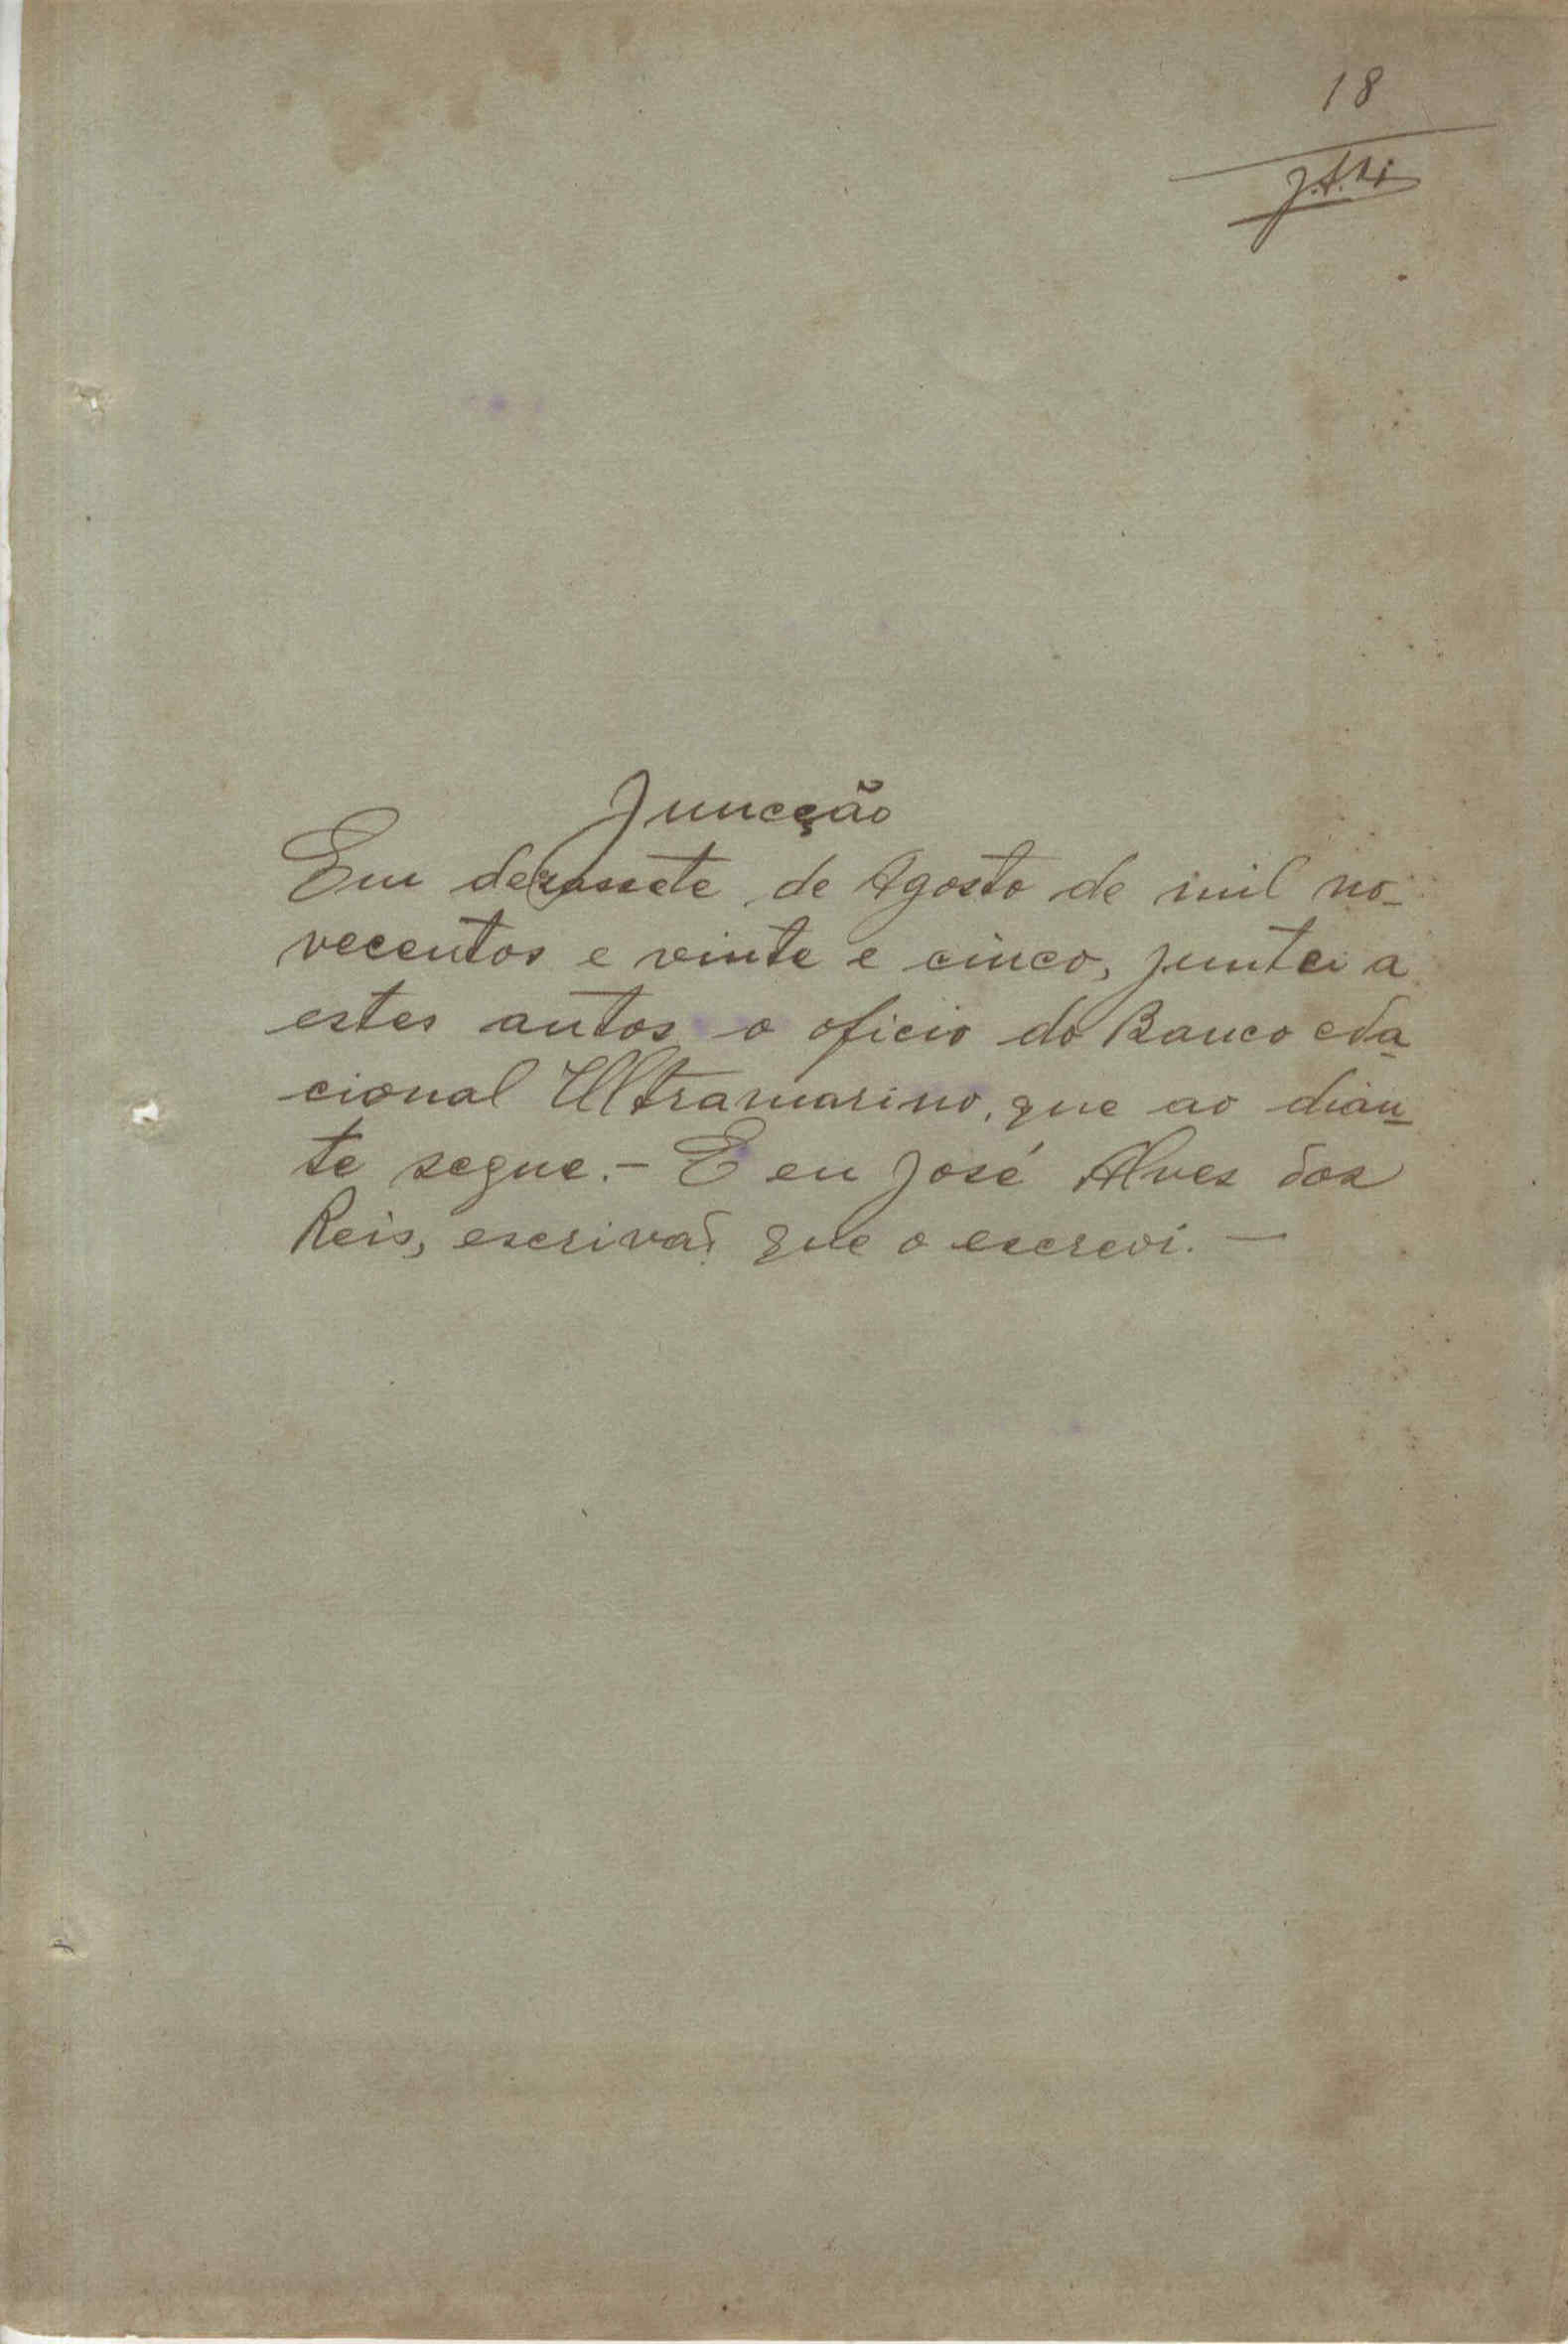 18
Juncção
Em dezassete de Agosto de mil no-
vecentos e vinte e cinco, juntei a
estes autos o oficio do Banco Na-
cional Ultramarino, que ao dian-
te segue. - E eu José Alves dos
Reis, escrivão que o escrevi. —